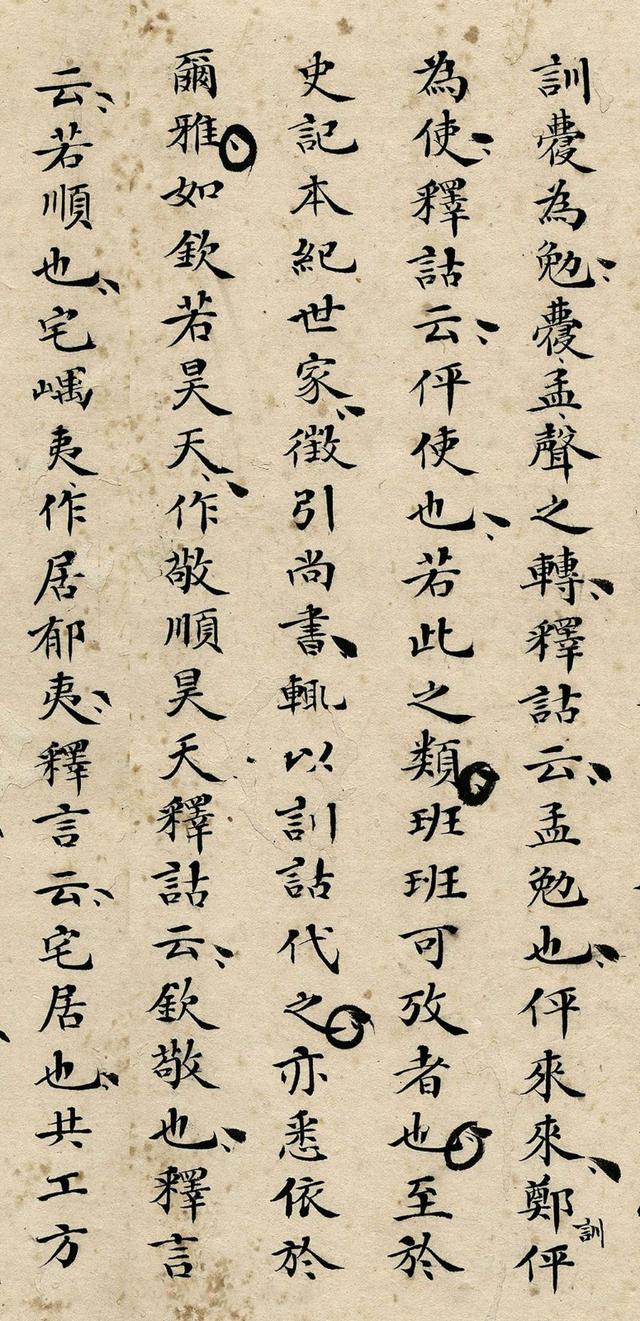 訓蘉為勉蘉孟聲之轉釋詁云孟勉也伻來來鄭訓伻
為使釋詁云伻使也若此之類班班可攷者也至於
史記本紀世家徵引尚書輒以訓詁代之亦悉依於
爾雅如欽若昊天作敬順昊天釋詁云欽敬也釋言
云若順也宅嵎夷作居郁夷釋言云宅居也共工方